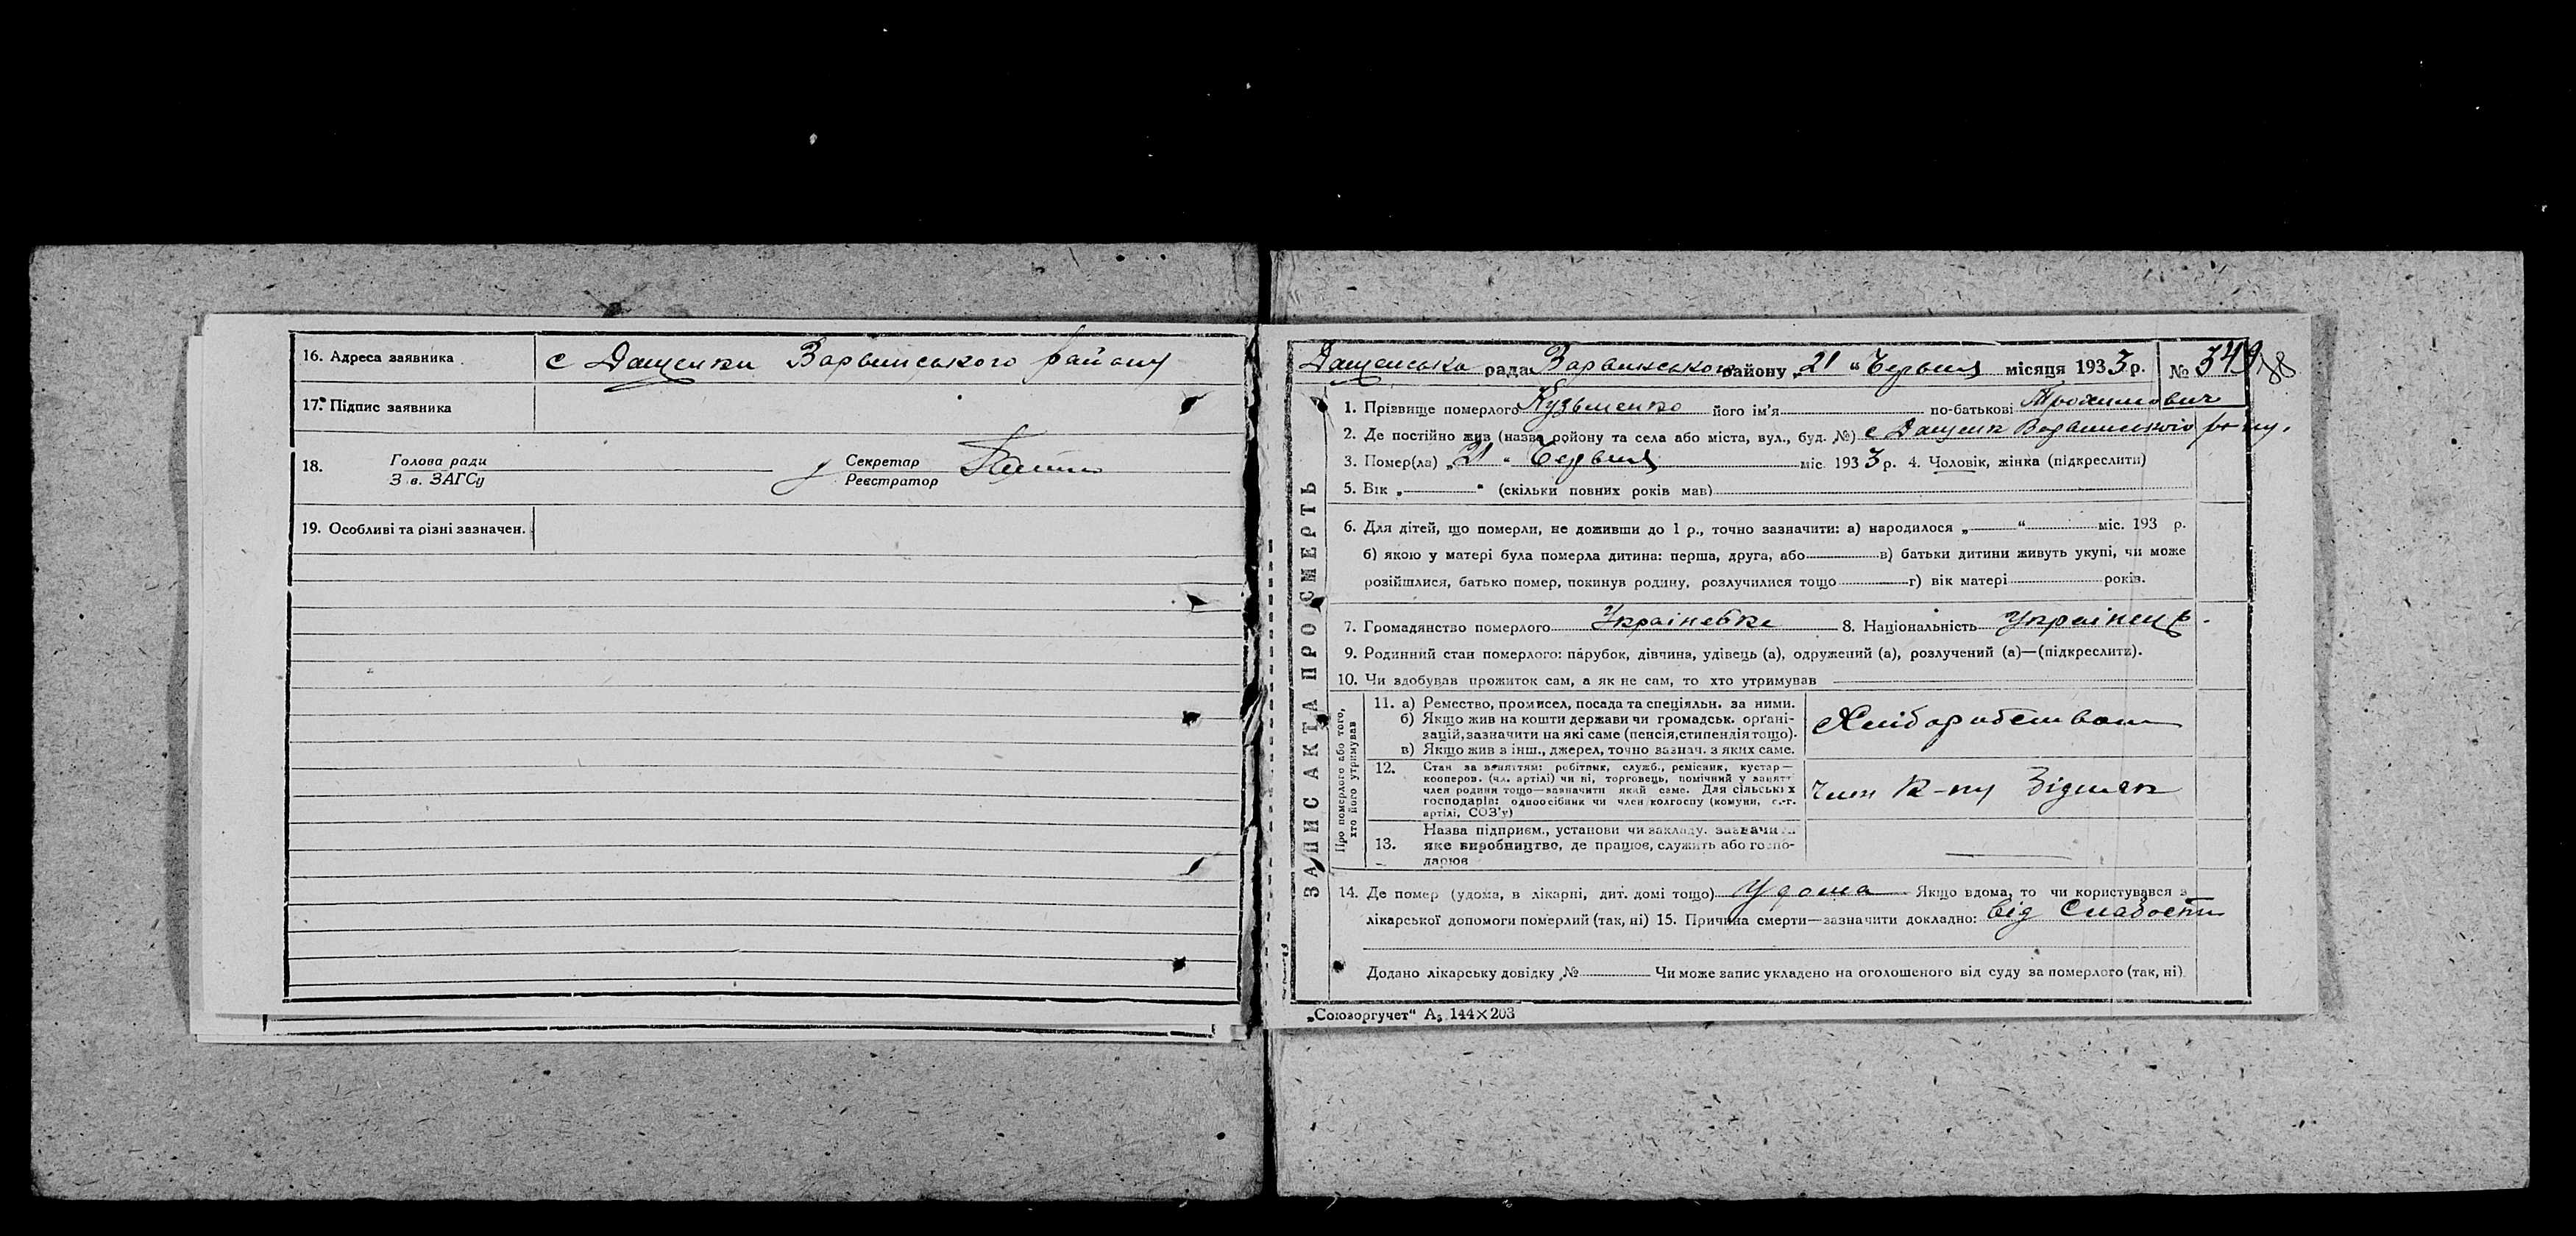 16. Адреса заявника с Дащенки Варвинського району
17. Підпис заявника
18. Голова ради Секретар
З в. ЗАГСу Реєстратор
19. Особливі та різні зазначен.
Дащенська рада Варвинського району „21“ Червня місяця 1933 р. № 349
88
ЗАПИС АКТА ПРО СМЕРТЬ
1. Прізвище померлого Кузьменко його ім'я по-батькові Трохимович
2. Де постійно жив (назва району та села або міста, вул., буд. №) с Дащенк Варвинського р-ну.
3. Помер(ла) „21“ Червня міс. 1933 р. 4. Чоловік, жінка (підкреслити)
5. Вік „ “ (скільки повних років мав)
6. Для дітей, що померли, не доживши до 1 р., точно зазначити: а) народилося „ “ міс. 193 р.
б) якою у матері була померла дитина: перша, друга, або в) батьки дитини живуть укупі, чи може
розійшлися, батько помер, покинув родину, розлучилися тощо г) вік матері років.
7. Громадянство померлого 8. Національність Українець.
9. Родинний стан померлого: парубок, дівчина, удівець (а), одружений (а), розлучений (а)—(підкреслити).
10. Чи здобував прожиток сам, а як не сам, то хто утримував
Про померлого або того,
хто його утримував
11. а) Ремество, промисел, посада та спеціяльн. за ними.
б) Якщо жив на кошти держави чи громадськ. органі-
зацій, зазначити на які саме (пенсія, стипендія тощо).
в) Якщо жив з інш., джерел, точно зазнач. з яких саме.
Хліборобством
12. Стан за заняттям: робітник, служб., ремісник, кустар—
кооперов. (чл. артілі) чи ні, торговець, помічний у занятт
член родини тощо—зазначити який саме. Для сільських
господарів: одноосібник чи член колгоспу (комуни, с.-г.
артілі, СОЗ'у)
Член К-пу
13. Назва підприєм., установи чи закладу. зазначи
яке виробництво, де працює, служить або госпо-
дарює
14. Де помер (удома, в лікарні, дит. домі тощо) Удома Якщо вдома, то чи користувався з
лікарської допомоги померлий (так, ні) 15. Причина смерти—зазначити докладно: Від Слабости
Додано лікарську довідку № Чи може запис укладено на оголошеного від суду за померлого (так, ні)
„Союзоргучет“ А₅ 144×203